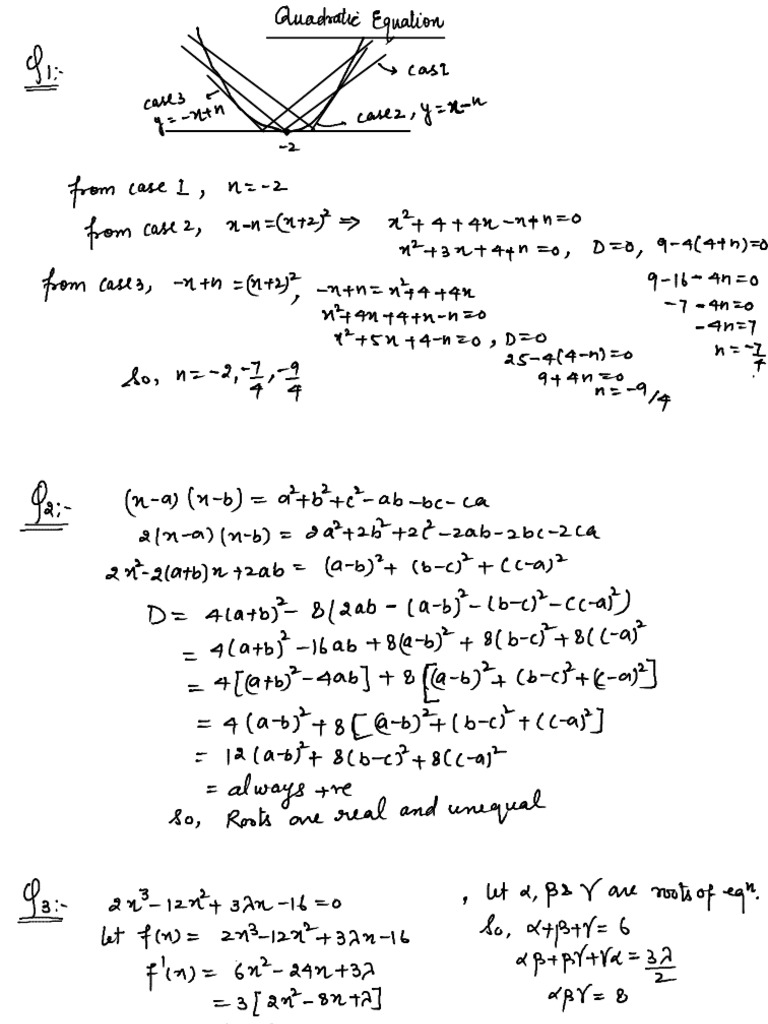 Quadratic Equation
Q1:-
cas1
case3
y=-x+n
case2, y=x-n
-2
from case 1, n=-2
from case 2, x-n=(x+2)² ⇒ x²+4+4x-x+n=0
x²+3x+4+n=0, D=0, 9-4(4+n)=0
9-16-4n=0
-7-4n=0
-4n=7
n=-7/4
from case3, -x+n=(x+2)², -x+n=x²+4+4x
x²+4x+4+x-n=0
x²+5x+4-n=0, D=0
25-4(4-n)=0
9+4n=0
n=-9/4
So, n=-2, -7/4, -9/4
Q2:-
(x-a)(x-b) = a²+b²+c²-ab-bc-ca
2(x-a)(x-b) = 2a²+2b²+2c²-2ab-2bc-2ca
2x²-2(a+b)x+2ab = (a-b)²+(b-c)²+(c-a)²
D = 4(a+b)²-8(2ab-(a-b)²-(b-c)²-(c-a)²)
= 4(a+b)²-16ab+8(a-b)²+8(b-c)²+8(c-a)²
= 4[(a+b)²-4ab]+8[(a-b)²+(b-c)²+(c-a)²]
= 4(a-b)²+8[(a-b)²+(b-c)²+(c-a)²]
= 12(a-b)²+8(b-c)²+8(c-a)²
= always +re
So, Roots are real and unequal
Q3:-
2x³-12x²+3λx-16=0
let f(x) = 2x³-12x²+3λx-16
f'(x) = 6x²-24x+3λ
= 3[2x²-8x+λ]
, let α, β & γ are roots of eqⁿ.
So, α+β+γ = 6
αβ+βγ+γα = 3λ/2
αβγ = 8